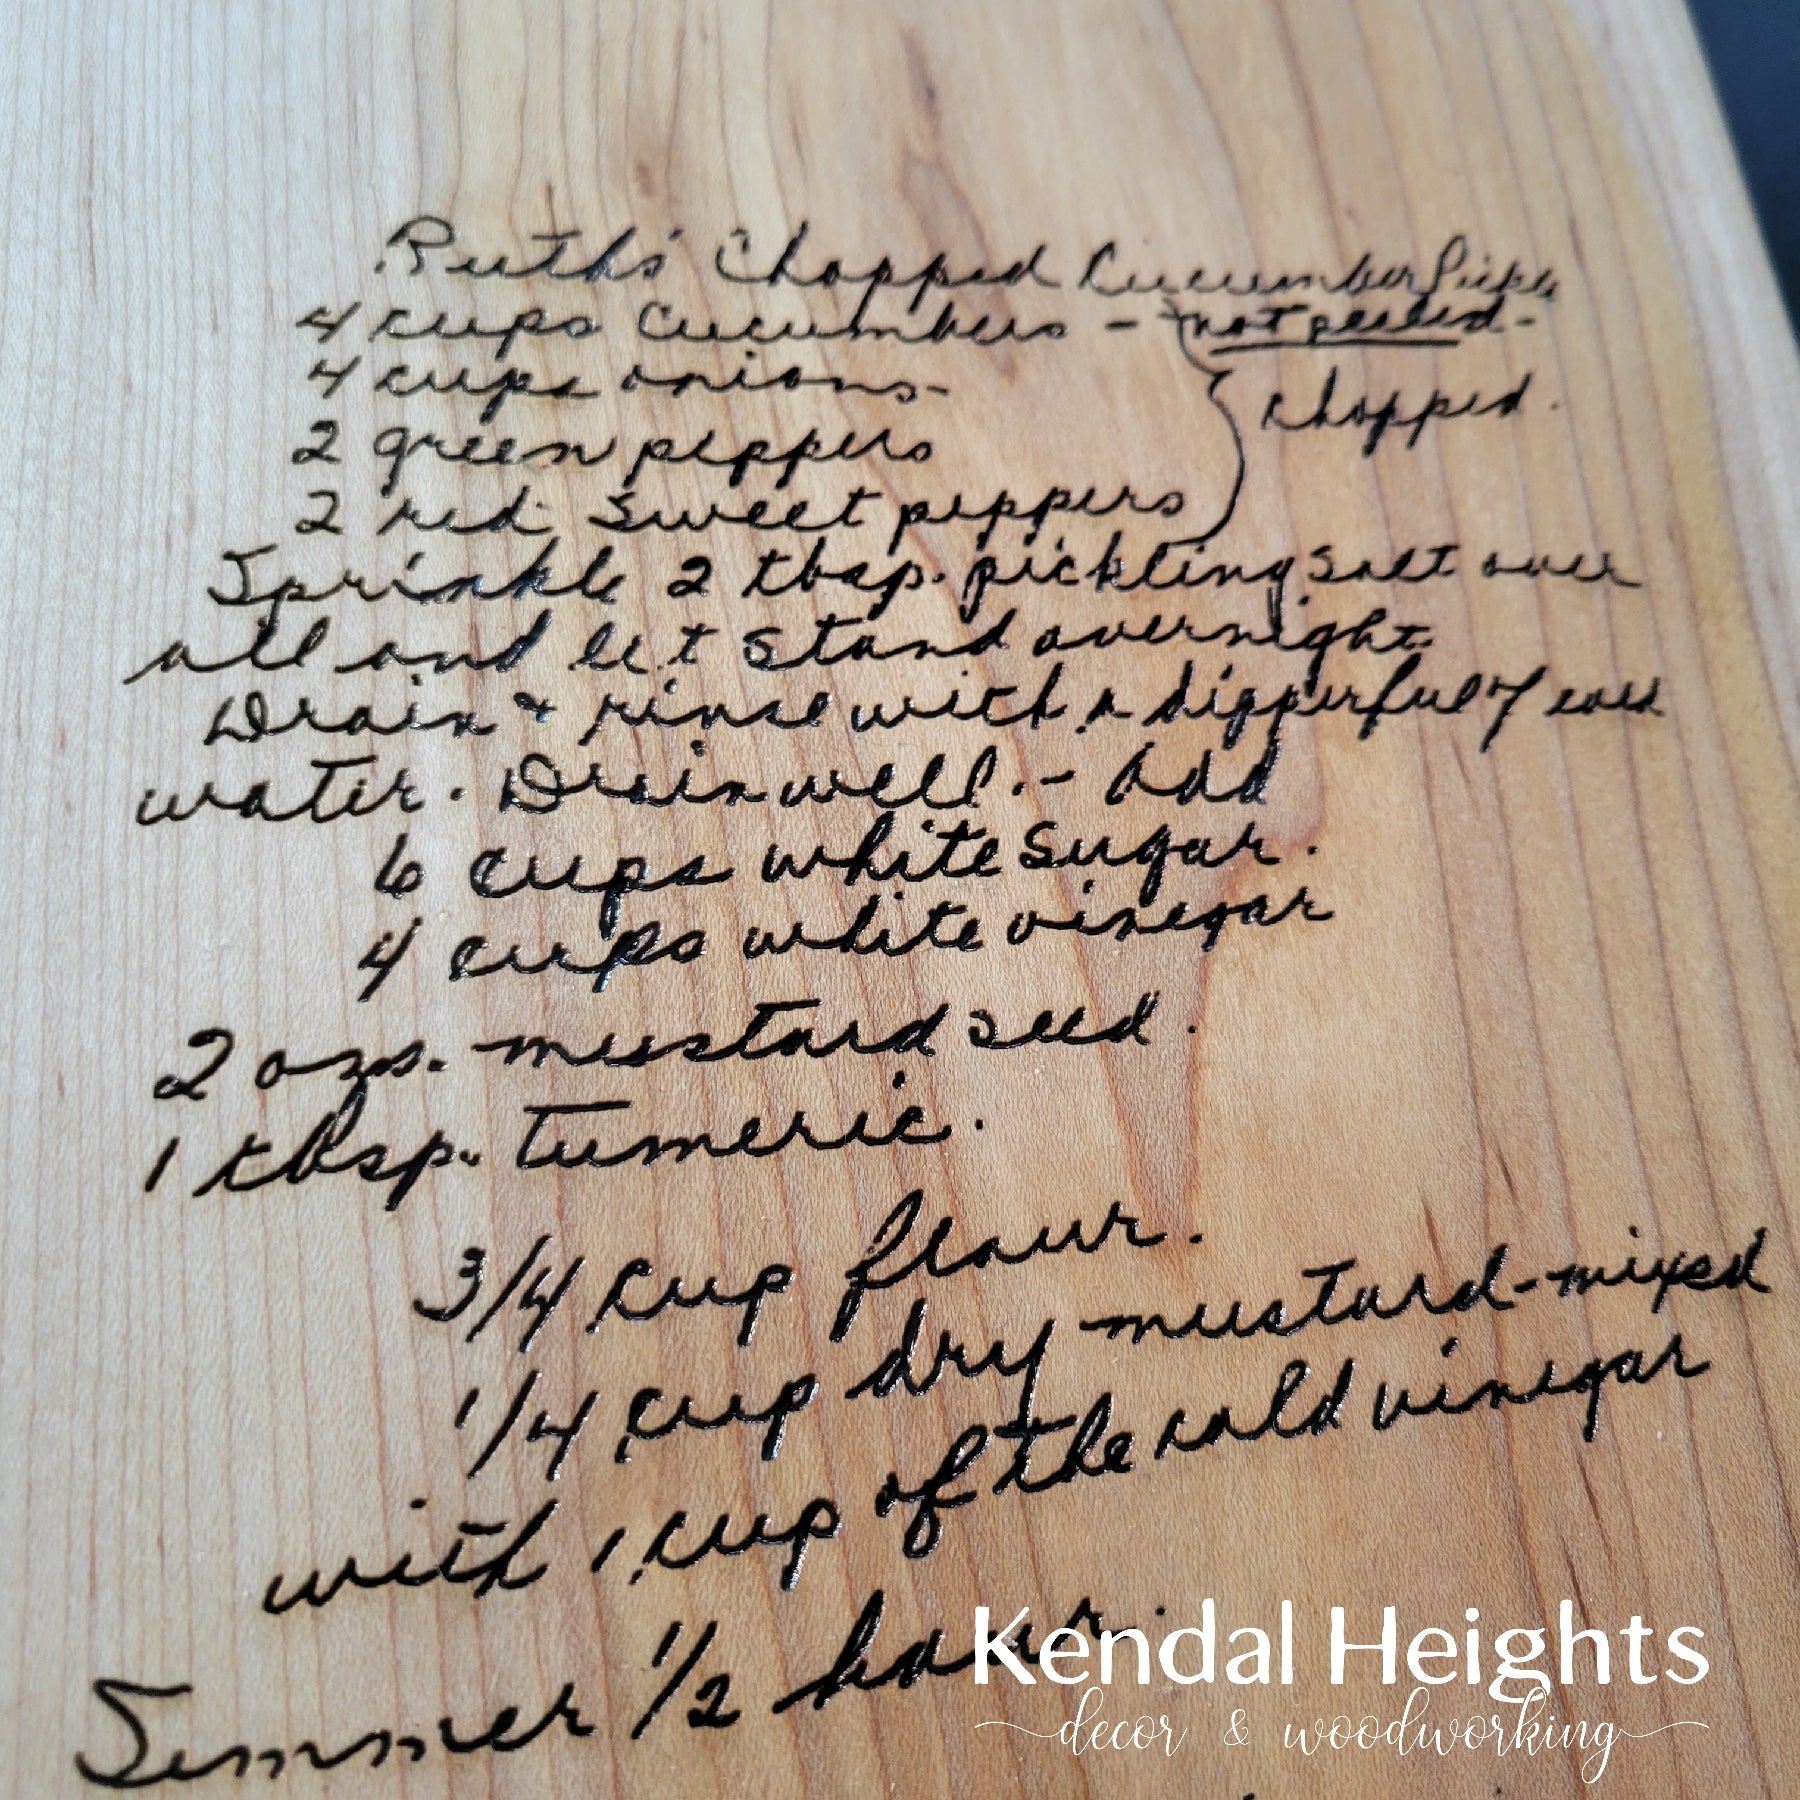 Ruth's Chopped Cucumber Pickle
4 cups Cucumbers - not peeled -
4 cups onions -
chopped.
2 green peppers
2 red sweet peppers
Sprinkle 2 tbsp. pickling salt over
all and let stand overnight.
Drain & rinse with a dipperful of cold
water. Drain well. - Add
6 cups white sugar.
4 cups white vinegar
2 ozs. mustard seed.
1 tbsp. tumeric.
3/4 cup flour.
1/4 cup dry mustard - mixed
with 1 cup of the cold vinegar
Simmer 1/2 hour.
Kendal Heights
decor & woodworking